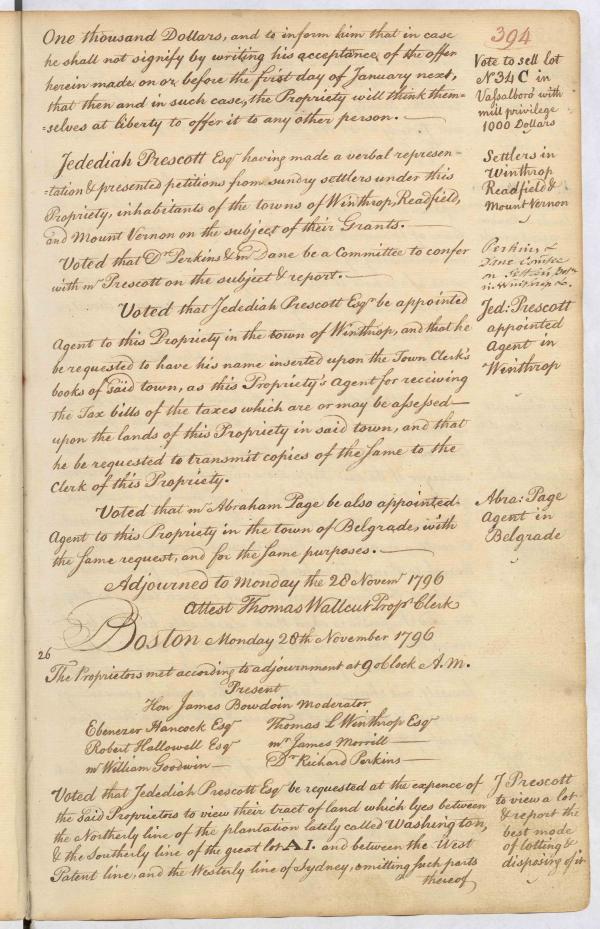 394
One thousand Dollars, and to inform him that in case
he shall not signify by writing his acceptance of the offer
herein made on or before the first day of January next,
that then and in such case, the Propriety will think them-
=selves at liberty to offer it to any other person.
Vote to sell lot
N34 C in
Vassalboro with
mill privilege
1000 Dollars
Jedediah Prescott Esqr having made a verbal represen-
=tation & presented petitions from sundry settlers under this
Propriety, inhabitants of the towns of Winthrop, Readfield,
and Mount Vernon on the subject of their Grants.
Settlers in
Winthrop
Readfield &
Mount Vernon
Voted that Dr Perkins & mr Dane be a Committee to confer
with mr Prescott on the subject & report.
Perkins &
Dane
Voted that Jedediah Prescott Esqr be appointed
Agent to this Propriety in the town of Winthrop, and that he
be requested to have his name inserted upon the Town Clerk's
books of said town, as this Propriety's Agent for receiving
the Tax bills of the taxes which are or may be assessed
upon the lands of this Propriety in said town, and that
he be requested to transmit copies of the same to the
Clerk of this Propriety.
Jed: Prescott
appointed
Agent in
Winthrop
Voted that mr Abraham Page be also appointed
Agent to this Propriety in the town of Belgrade, with
the same request, and for the same purposes.
Abra: Page
Agent in
Belgrade
Adjourned to Monday the 28 Novemr 1796
Attest Thomas Wallcut Propr Clerk
Boston Monday 28th November 1796
26
The Proprietors met according to adjournment at 9 oClock A.M.
Present
Hon James Bowdoin Moderator
Ebenezer Hancock Esqr Thomas L Winthrop Esqr
Robert Hallowell Esqr mr James Morrill
mr William Goodwin Dr Richard Perkins
Voted that Jedediah Prescott Esqr be requested at the expence of
the said Proprietors to view their tract of land which lyes between
the Northerly line of the plantation lately called Washington,
& the Southerly line of the great lot A I. and between the West
Patent line, and the Westerly line of Sydney, omitting such parts
thereof
J Prescott
to view a lot
& report the
best mode
of lotting &
disposing of it